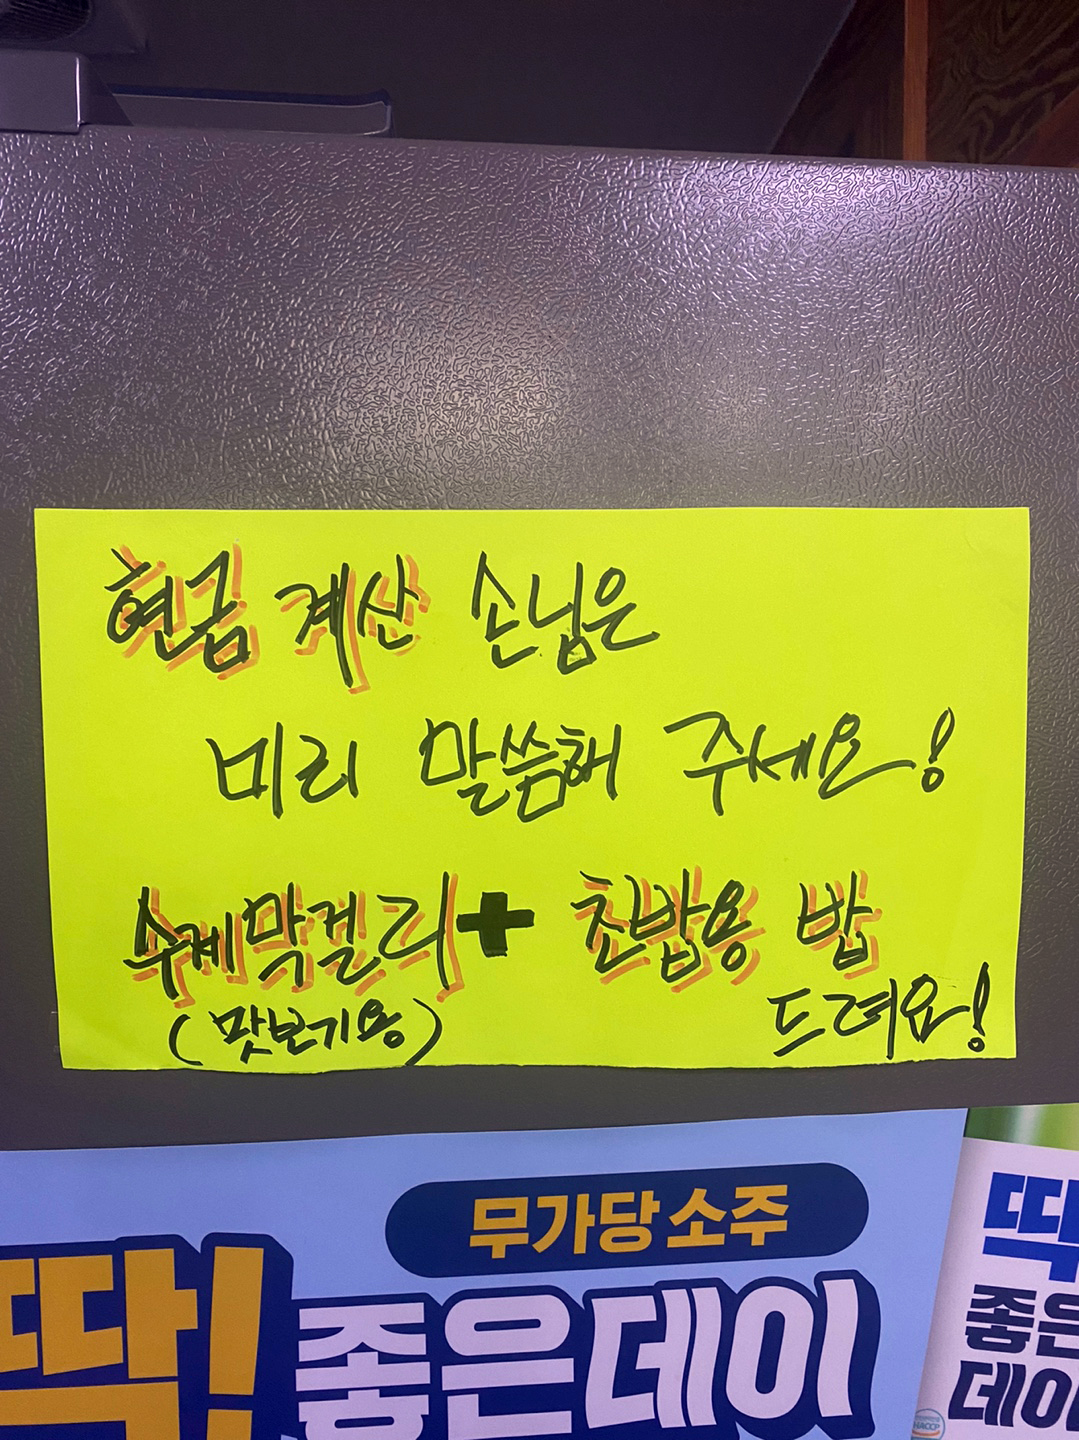 현금 계산 손님은
미리 말씀해 주세요!
수제막걸리 + 초밥용 밥
(맛보기용) 드려요!
무가당 소주
딱! 좋은데이
딱
좋은
데이
HACCP